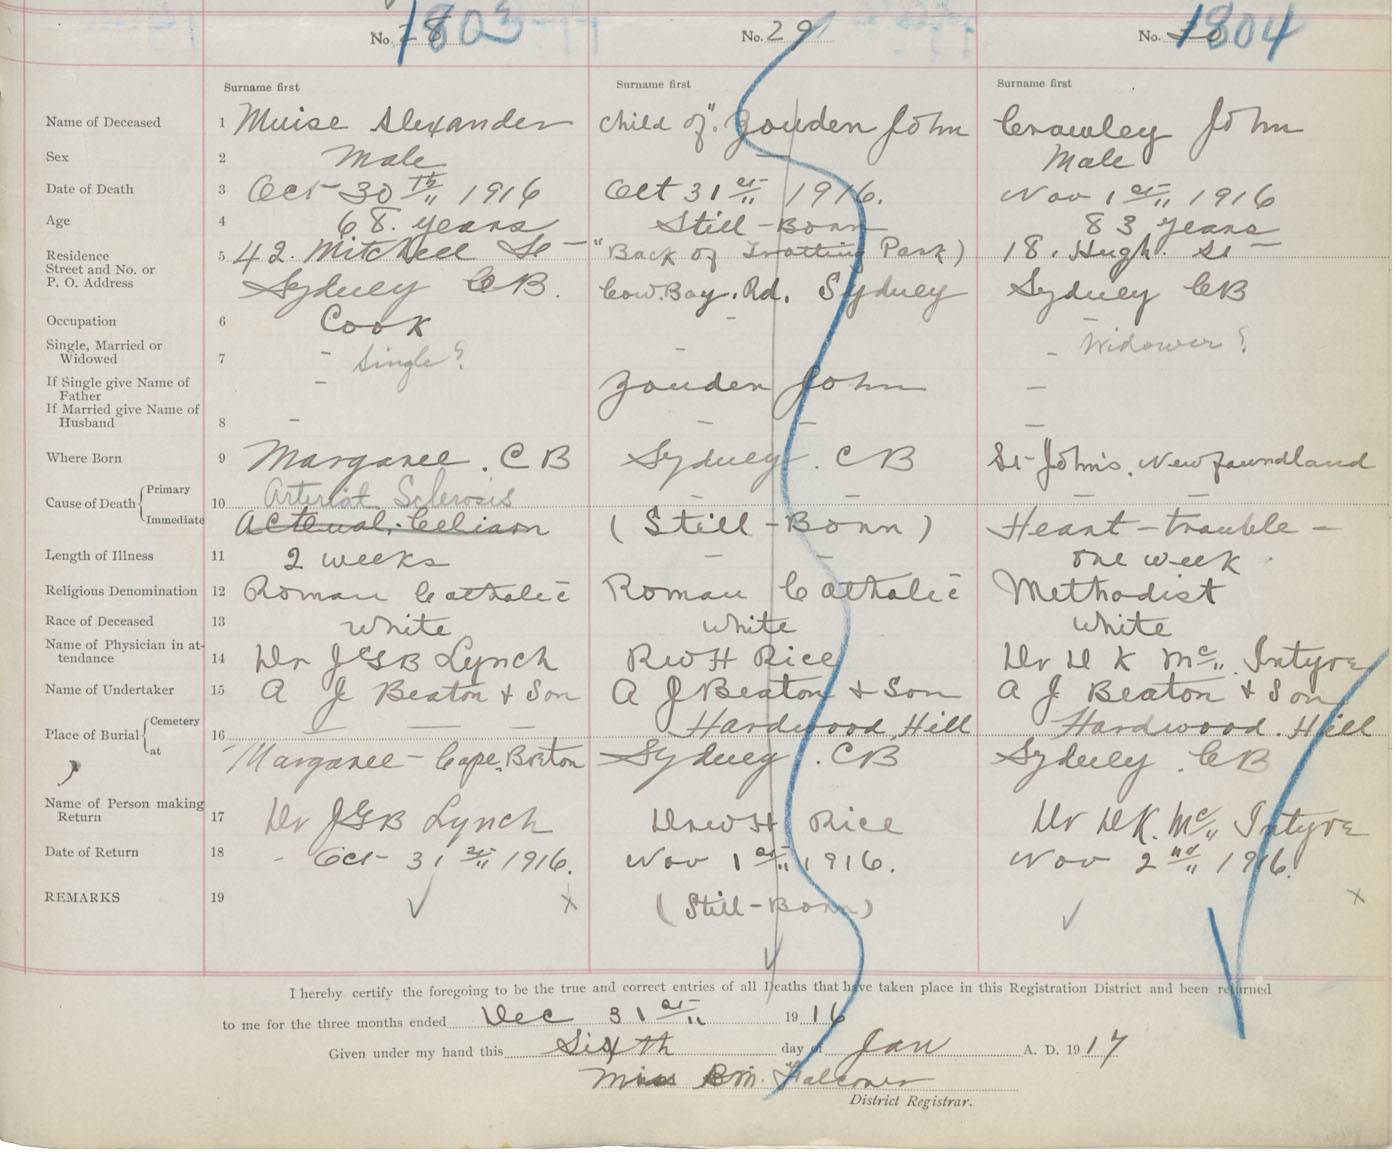 No. 28 1803 No. 29 No. 30 1804
Surname first Surname first Surname first
Name of Deceased 1 Muise Alexander Child of "Zouden John Crawley John
Sex 2 Male — Male
Date of Death 3 Oct 30th 1916 Oct 31st 1916. Nov 1st 1916
Age 4 68. years Still-Born 83 years
Residence 5 42. Mitchell St "Back of Trotting Park) 18. Hugh. St
Street and No. or
P. O. Address Sydney CB. Cow.Bay.Rd. Sydney Sydney CB
Occupation 6 Cook - -
Single, Married or
Widowed 7 - Single? - - Widower?
If Single give Name of
Father - Zouden John -
If Married give Name of
Husband 8 - - - -
Where Born 9 Margaree. CB Sydney. CB St-John's. Newfoundland
Cause of Death { Primary 10 Arterial Sclerosis - - - -
Immediate (Still-Born) Heart-trouble-
Length of Illness 11 2 weeks - - one week
Religious Denomination 12 Roman Catholic Roman Catholic Methodist
Race of Deceased 13 white white white
Name of Physician in at-
tendance 14 Dr JGB Lynch Rev H Rice Dr D K Mc Intyre
Name of Undertaker 15 A J Beaton & Son A J Beaton & Son A J Beaton & Son
Place of Burial { Cemetery 16 — — — Hardwood Hill Hardwood. Hill
at Margaree - Cape Breton Sydney. CB Sydney. CB
Name of Person making
Return 17 Dr JGB Lynch Drew H Rice Dr DK. Mc Intyre
Date of Return 18 - Oct 31st 1916. Nov 1st 1916. Nov 2nd 1916.
REMARKS 19 ✓ x (Still-Born) ✓ x
I hereby certify the foregoing to be the true and correct entries of all Deaths that have taken place in this Registration District and been returned
to me for the three months ended Dec 31st 1916
Given under my hand this Sixth day of Jan A. D. 1917
Miss Falconer
District Registrar.